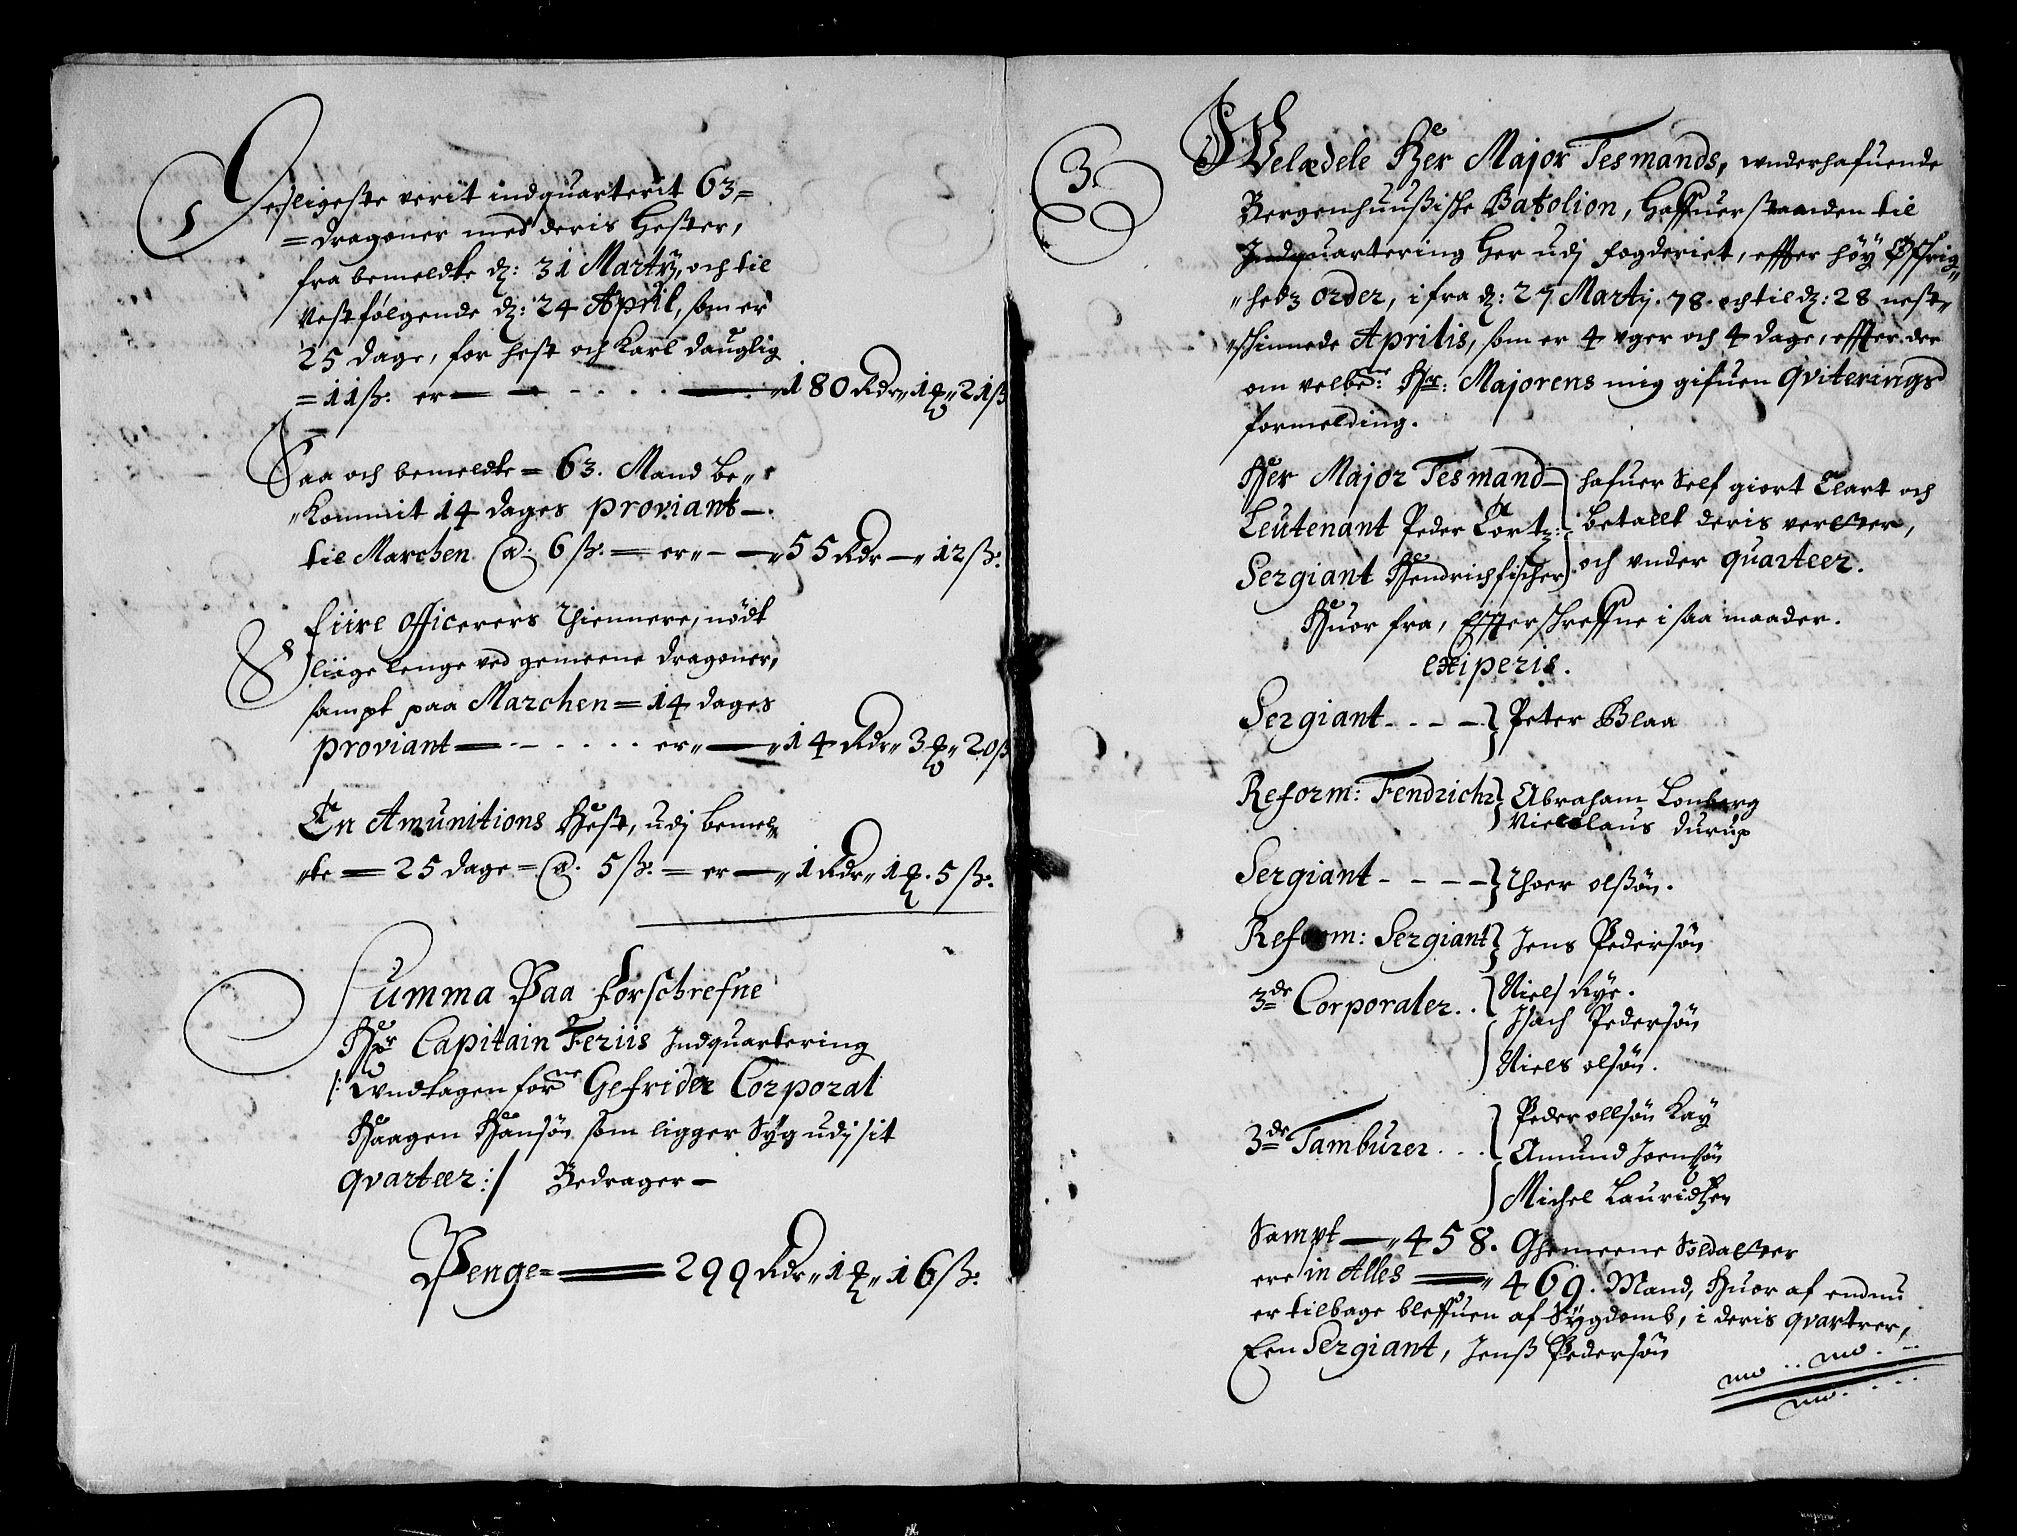 Desligeste verit indquarterit 63=
=dragoner med deris Hester,
fra bemeldte dz: 31 Martij, och til
Nestfølgende dz: 24 April, som er
25 dage, for hest och Karl dauglig
=11 ß: er — — „180 Rdr„ 1 ℔„ 21 ß
Saa och bemeldte = 63. Mand be„
„Kommit 14 dages proviant —
til Marchen @. 6 ß: = er„ — „55 Rdr — „12 ß:
fiire Officerers Thiennere, nødt
Sliige lenge ved gemeene dragoner,
sampt paa Marchen = 14 dages
proviant — er„ — „14 Rdr„ 3 ℔„ 20 ß
En Amunitions Hest, udj bemel„
„te — 25 dage = @. 5 ß: = er — „1 Rdr„ 1 ℔. 5 ß:
Summa Paa forschrefne
Hr Capitain Feriis Indquartering
/: undtagen forne Gefrider Corporal
Haagen Hansøn som ligger Syg udj sit
qvarteer :/ Bedrager —
Penge = 299 Rdr„ 1 ℔„ 16 ß:
3.
Welædele Her Major Tesmands, underhafuende
Bergenhuußische Batolion, Haffuer standen til
Indquartering Her udj fogderiet, effter høy Øfrig„
„hedz order, ifra dz: 27 Martij. 78. och til dz: 28 nest„
„schinnede Aprilis, som er 4 uger och 4 dage, effter der
om velbe: Her: Majorens mig gifuen Qviterings
formelding.
Her Major Tesmand — hafuer Self giort Clart och
Leutenant Peder Cortz: betallt deris verther,
Sergiant Hendrich fischer och under quarteer.
Huor fra, Effterschreffne i saa maader.
exiperis.
Sergiant - - - - Peter Blaa
Reform: Fendrichz Abraham Lonberg
Nicolaus Durup
Sergiant - - - - Thoer olßøn.
Reform: Sergiant Jens Pedersøn
3de Corporaler . . Niels Rye.
Isach Pedersøn
Niels olsøn.
3de Tamburer . . . Peder ollsøn Kay
Amund Joensøn
Michel Lauridtzen
Sampt — „458. Ghemeene Soldatter
ere in Alles — „469. Mand, Huor af endnu
er tilbage bleffuen af Sygdomb, i deris qvartrer,
Een Sergiant, Jenß Pedersøn